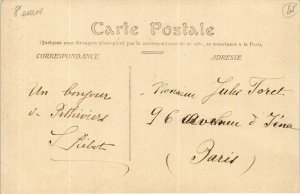 8 euros
Carte Postale
Quelques pays étrangers n'acceptent pas la correspondance de ce côté, se renseigner à la Poste
CORRESPONDANCE
ADRESSE
Un bonjour
de Pithiviers
Monsieur Jules Foret
96 Avenue d'Iéna
(Paris)